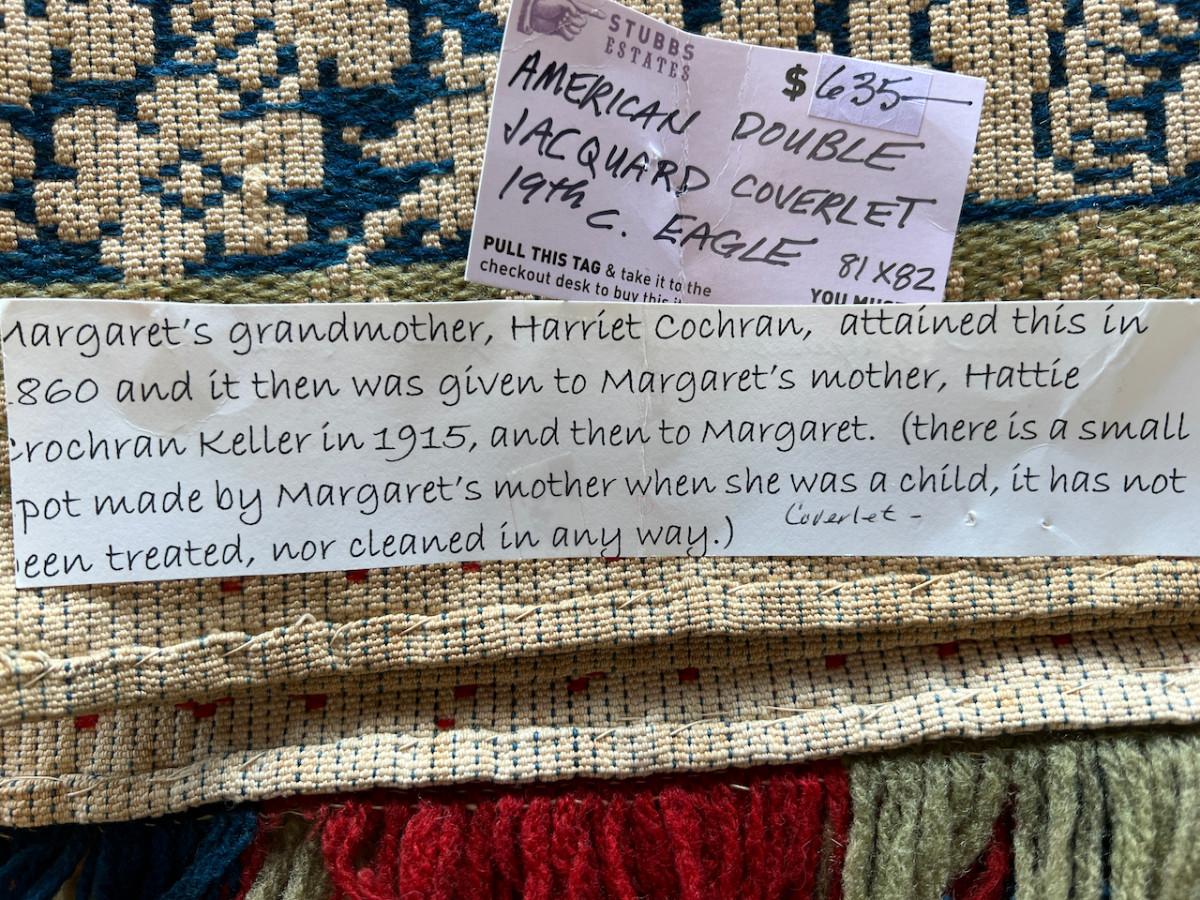 STUBBS
ESTATES
$635—
AMERICAN DOUBLE
JACQUARD COVERLET
19th C. EAGLE 81X82
PULL THIS TAG & take it to the
checkout desk to buy this
YOU
Margaret's grandmother, Harriet Cochran, attained this in
860 and it then was given to Margaret's mother, Hattie
Crochran Keller in 1915, and then to Margaret. (there is a small
pot made by Margaret's mother when she was a child, it has not
een treated, nor cleaned in any way.)
Coverlet -